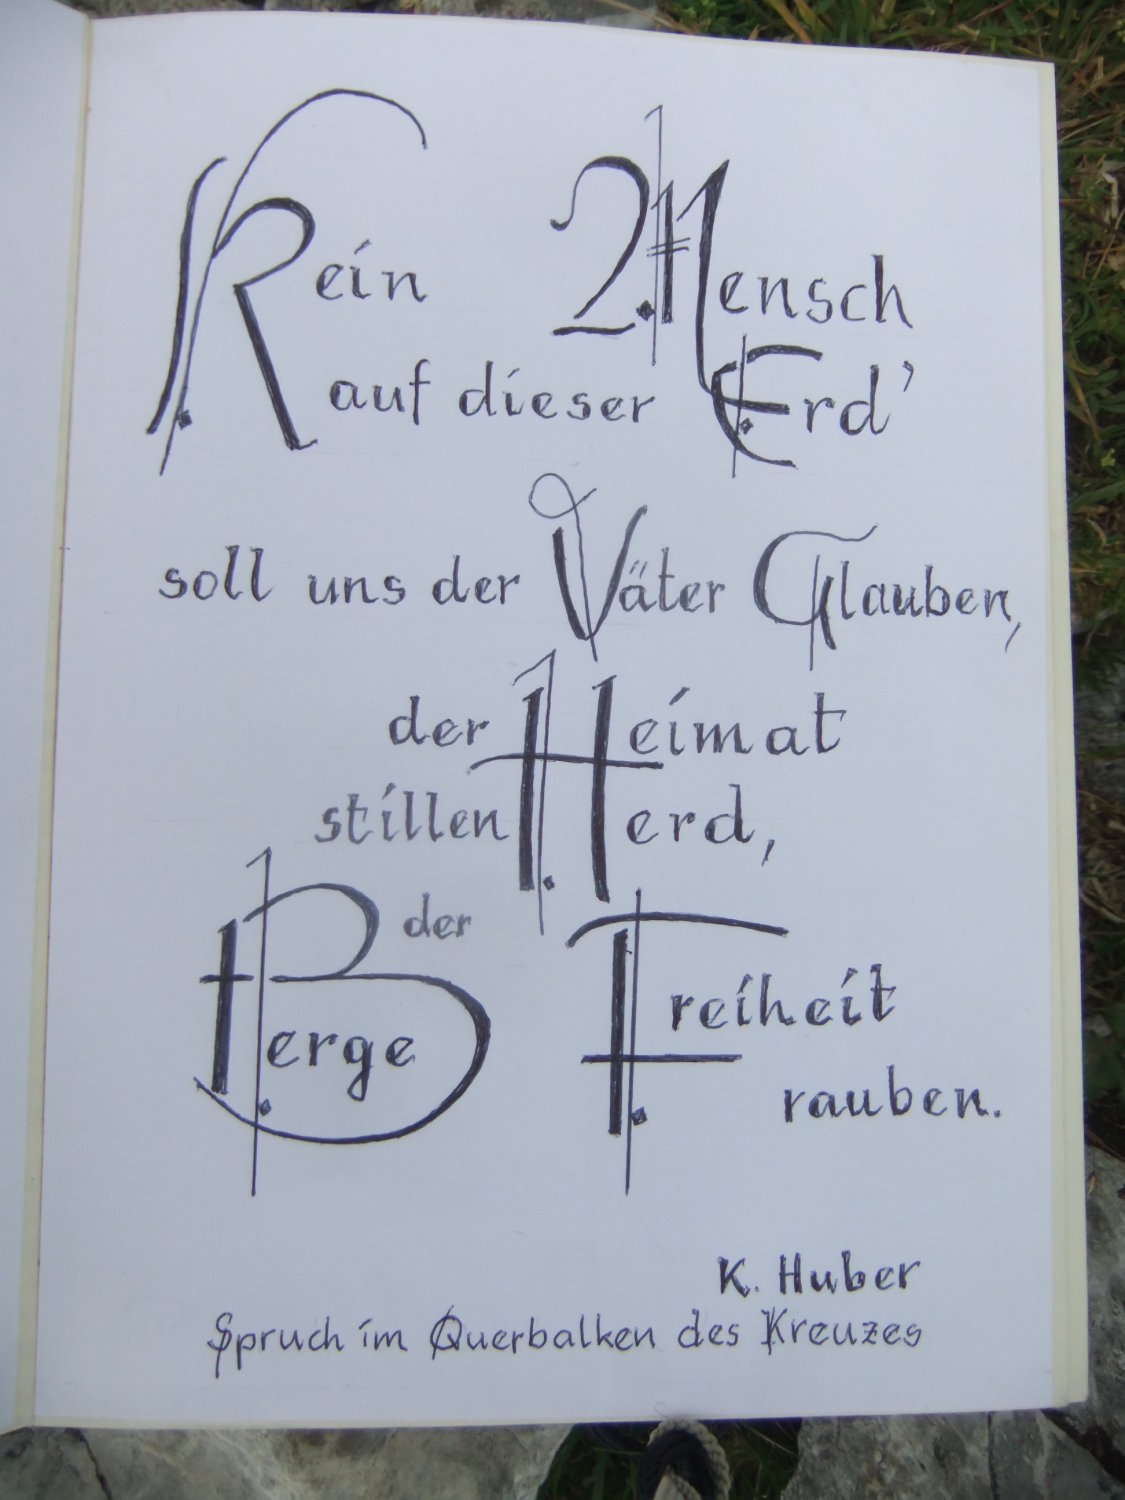 Kein Mensch
auf dieser Erd'
soll uns der Väter Glauben,
der Heimat
stillen Herd,
der
Berge Freiheit
rauben.
K. Huber
Spruch im Querbalken des Kreuzes